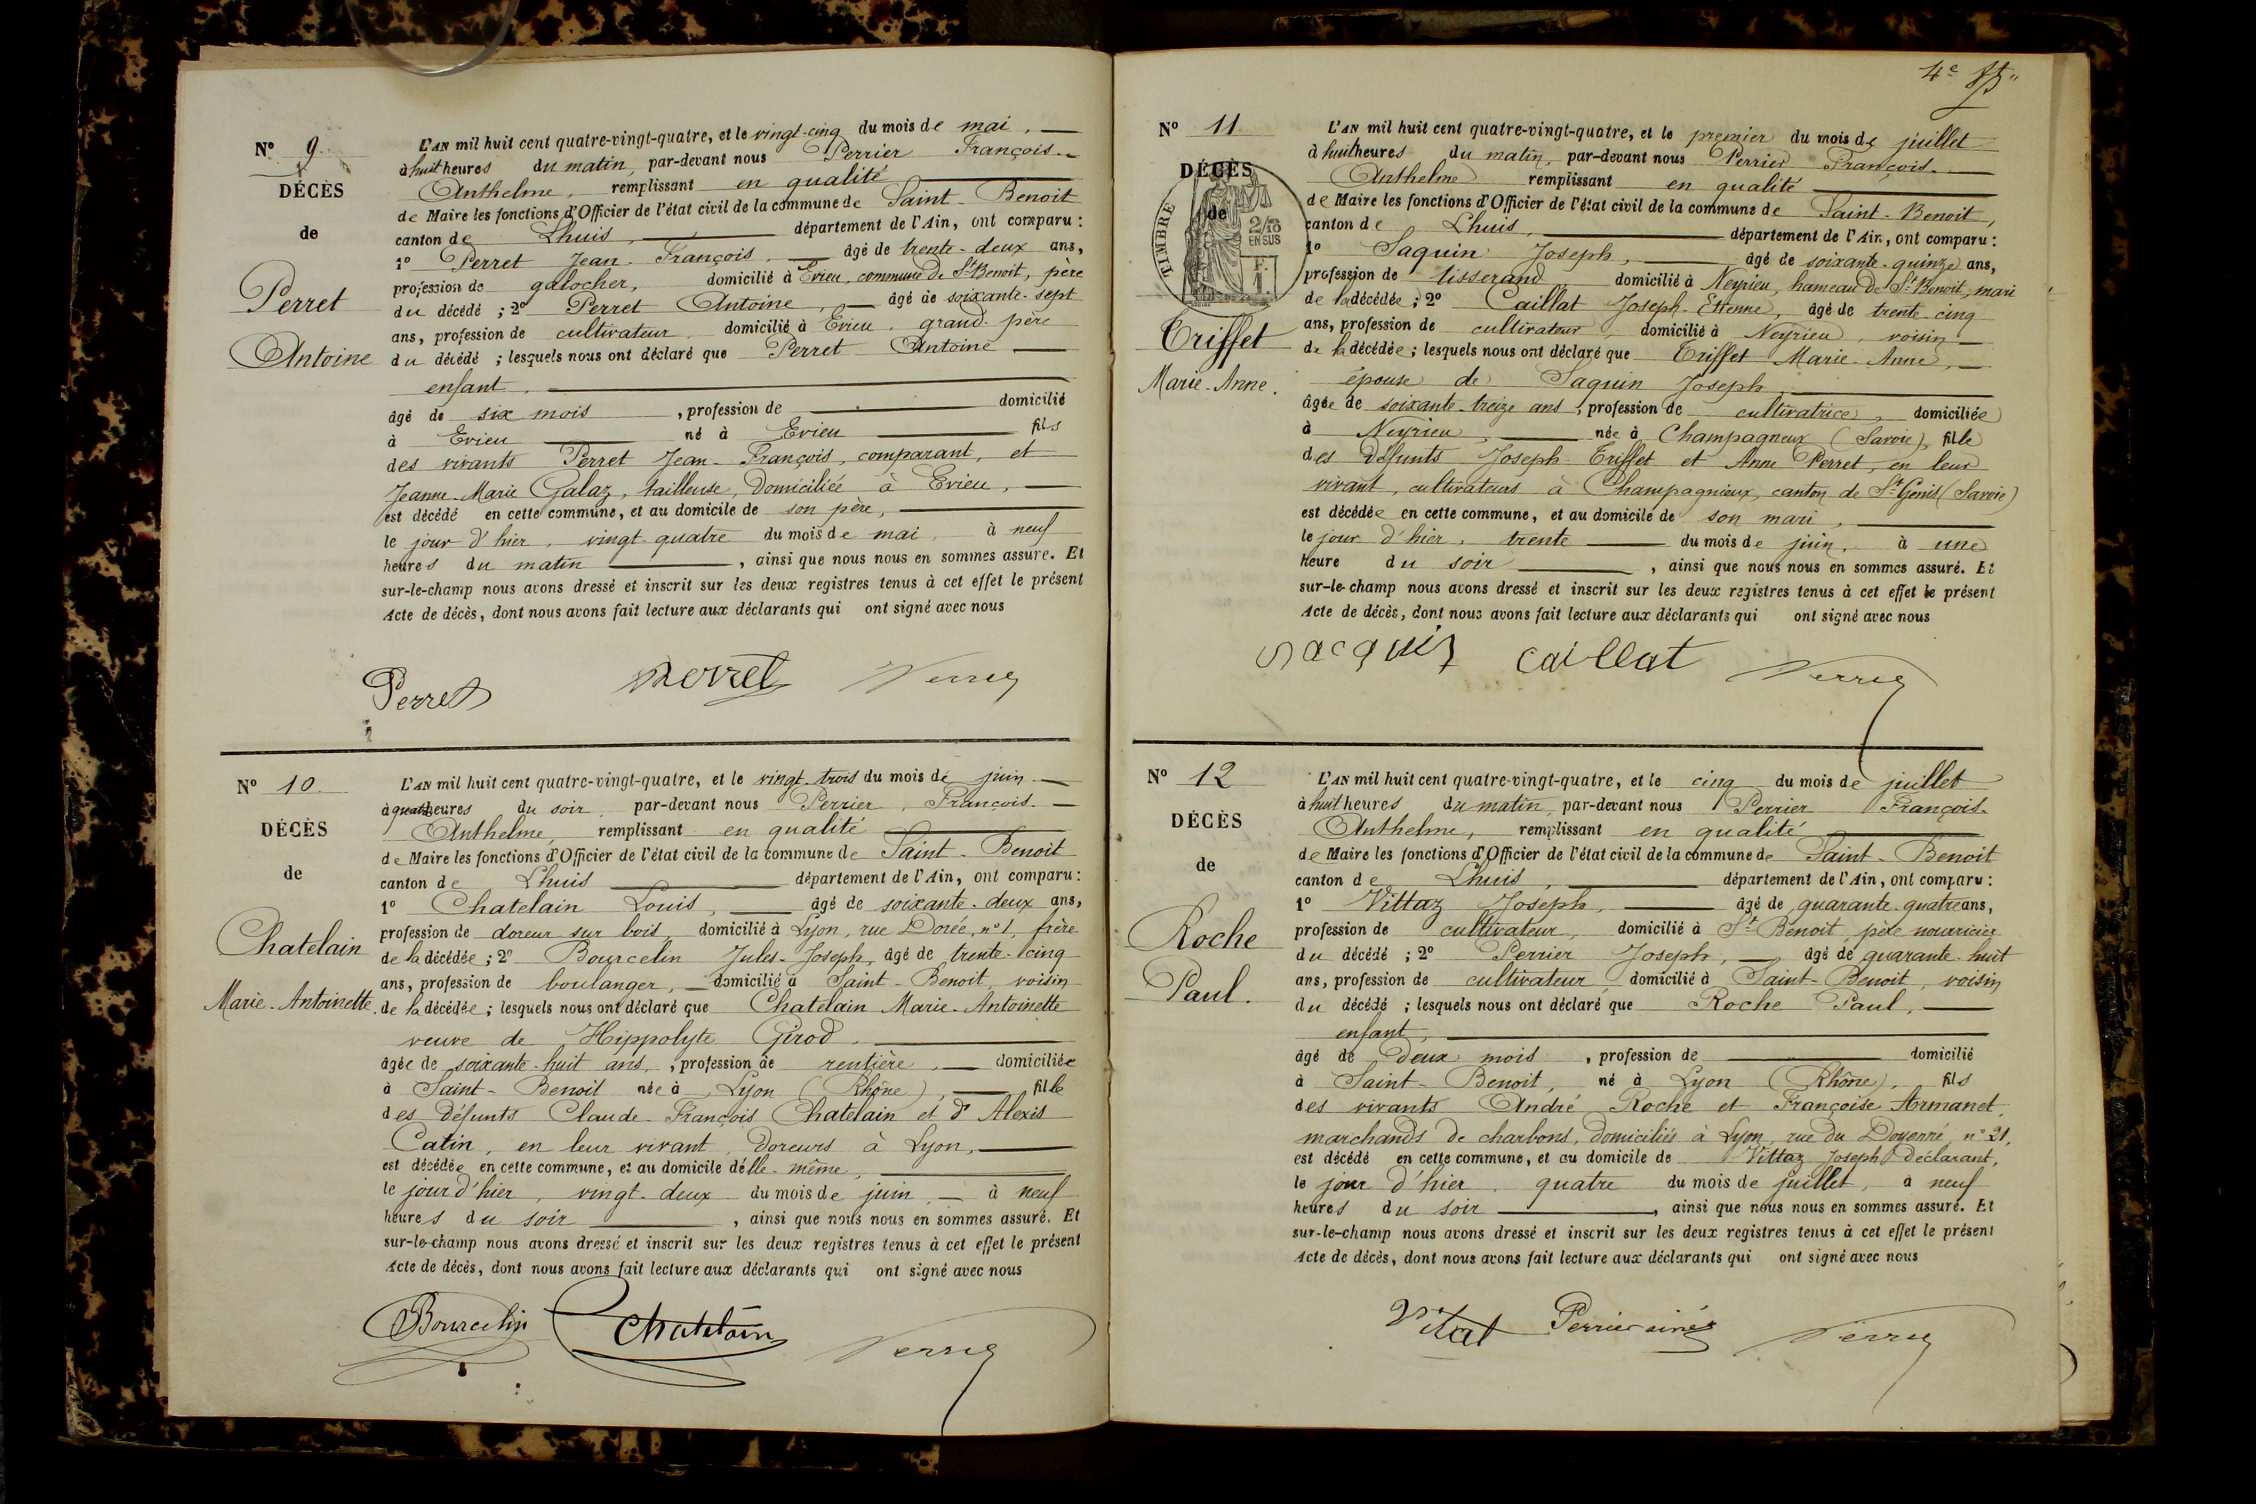 N° 9
DÉCÈS
de
Perret
Antoine
L'AN mil huit cent quatre-vingt-quatre, et le vingt-cinq du mois de mai,
à huit heures du matin, par-devant nous Perrier François-
Anthelme, remplissant en qualité
de Maire les fonctions d'Officier de l'état civil de la commune de Saint-Benoit
canton de Lhuis, département de l'Ain, ont comparu :
1° Perret Jean-François, âgé de trente-deux ans,
profession de galocher, domicilié à Evieu, commune de St Benoit, père
du décédé ; 2° Perret Antoine, âgé de soixante-sept
ans, profession de cultivateur domicilié à Evieu, grand-père
du décédé ; lesquels nous ont déclaré que Perret Antoine
enfant,
âgé de six mois, profession de domicilié
à Evieu né à Evieu fils
des vivants Perret Jean-François, comparant, et
Jeanne-Marie Galaz, tailleuse, domiciliée à Evieu,
est décédé en cette commune, et au domicile de son père,
le jour d'hier, vingt-quatre du mois de mai, à neuf
heures du matin, ainsi que nous nous en sommes assuré. Et
sur-le-champ nous avons dressé et inscrit sur les deux registres tenus à cet effet le présent
Acte de décès, dont nous avons fait lecture aux déclarants qui ont signé avec nous
Perret Perret Perrier
N° 10
DÉCÈS
de
Chatelain
Marie-Antoinette.
L'AN mil huit cent quatre-vingt-quatre, et le vingt-trois du mois de juin
à quatre heures du soir, par-devant nous Perrier, François-
Anthelme, remplissant en qualité
de Maire les fonctions d'Officier de l'état civil de la commune de Saint-Benoit
canton de Lhuis département de l'Ain, ont comparu :
1° Chatelain Louis, âgé de soixante-deux ans,
profession de doreur sur bois, domicilié à Lyon, rue Dorée, n° 1, frère
de la décédée ; 2° Bourcelin Jules-Joseph, âgé de trente-cinq
ans, profession de boulanger, domicilié à Saint-Benoit, voisin
de la décédée ; lesquels nous ont déclaré que Chatelain Marie-Antoinette
veuve de Hippolyte Girod,
âgée de soixante-huit ans, profession de rentière, domiciliée
à Saint-Benoit née à Lyon (Rhône), fille
des défunts Claude-François Chatelain et d' Alexis
Catin, en leur vivant doreurs à Lyon,
est décédée en cette commune, et au domicile d'elle-même,
le jour d'hier, vingt-deux du mois de juin, à neuf
heures du soir, ainsi que nous nous en sommes assuré. Et
sur-le-champ nous avons dressé et inscrit sur les deux registres tenus à cet effet le présent
Acte de décès, dont nous avons fait lecture aux déclarants qui ont signé avec nous
Bourcelin Chatelain Perrier
4e
N° 11
DÉCÈS
de
TIMBRE
2/10
EN SUS
F.
1.
Triffet
Marie-Anne.
L'AN mil huit cent quatre-vingt-quatre, et le premier du mois de juillet
à huit heures du matin, par-devant nous Perrier François-
Anthelme remplissant en qualité
de Maire les fonctions d'Officier de l'état civil de la commune de Saint-Benoit,
canton de Lhuis, département de l'Ain, ont comparu :
1° Saquin Joseph, âgé de soixante-quinze ans,
profession de tisserand domicilié à Neyrieu, hameau de St Benoit, mari
de la décédée ; 2° Caillat Joseph-Etienne, âgé de trente-cinq
ans, profession de cultivateur, domicilié à Neyrieu, voisin
de la décédée ; lesquels nous ont déclaré que Triffet Marie-Anne,
épouse de Saquin Joseph,
âgée de soixante-treize ans, profession de cultivatrice, domiciliée
à Neyrieu, née à Champagneux (Savoie), fille
des défunts Joseph Triffet et Anne Perret, en leur
vivant, cultivateurs à Champagnieux, canton de St Genis (Savoie)
est décédée en cette commune, et au domicile de son mari,
le jour d'hier, trente du mois de juin, à une
heure du soir, ainsi que nous nous en sommes assuré. Et
sur-le-champ nous avons dressé et inscrit sur les deux registres tenus à cet effet le présent
Acte de décès, dont nous avons fait lecture aux déclarants qui ont signé avec nous
Sacquin Caillat Perrier
N° 12
DÉCÈS
de
Roche
Paul.
L'AN mil huit cent quatre-vingt-quatre, et le cinq du mois de juillet
à huit heures du matin, par-devant nous Perrier François-
Anthelme, remplissant en qualité
de Maire les fonctions d'Officier de l'état civil de la commune de Saint-Benoit
canton de Lhuis, département de l'Ain, ont comparu :
1° Vittaz Joseph, âgé de quarante-quatre ans,
profession de cultivateur, domicilié à St Benoit, père nourricier
du décédé ; 2° Perrier Joseph, âgé de quarante-huit
ans, profession de cultivateur, domicilié à Saint-Benoit, voisin
du décédé ; lesquels nous ont déclaré que Roche Paul,
enfant,
âgé de deux mois, profession de domicilié
à Saint-Benoit, né à Lyon (Rhône), fils
des vivants André Roche et Françoise Armanet,
marchands de charbons, domiciliés à Lyon, rue du Doyenné, n° 21,
est décédé en cette commune, et au domicile de Vittaz Joseph déclarant,
le jour d'hier, quatre du mois de juillet, à neuf
heures du soir, ainsi que nous nous en sommes assuré. Et
sur-le-champ nous avons dressé et inscrit sur les deux registres tenus à cet effet le présent
Acte de décès, dont nous avons fait lecture aux déclarants qui ont signé avec nous
Vital Perrier ainé Perrier